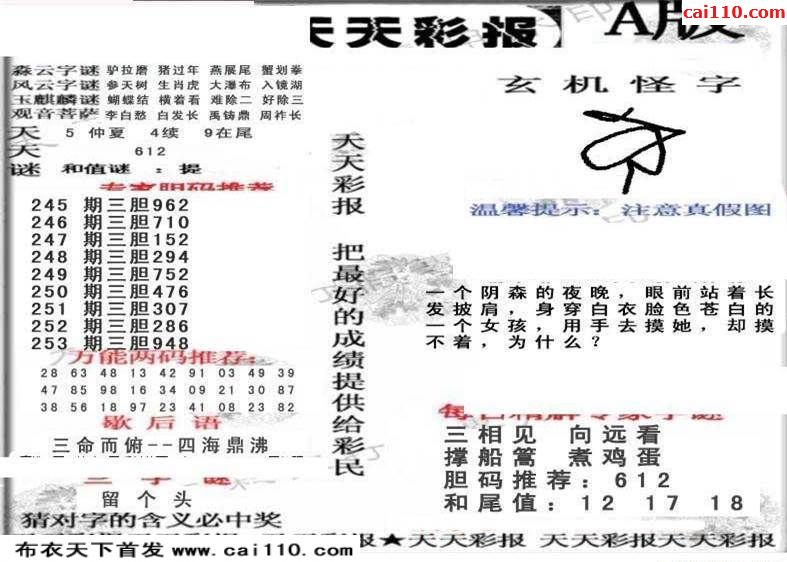 cai110.com
天天彩报】 A版
森云字谜 驴拉磨 猪过年 燕展尾 蟹划拳
风云字谜 参天树 生肖虎 大瀑布 入镜湖
玉麒麟谜 蝴蝶结 横着看 难除二 好除三
观音菩萨 李白愁 白发长 禹铸鼎 周祚长
天 5 仲夏 4续 9在尾
天 612
谜 和值谜 : 提
专家胆码推荐
245 期三胆962
246 期三胆710
247 期三胆152
248 期三胆294
249 期三胆752
250 期三胆476
251 期三胆307
252 期三胆286
253 期三胆948
万能两码推荐:
28 63 48 13 42 91 03 49 39
47 85 98 16 34 09 21 30 87
38 56 18 97 23 41 08 23 82
歇后语
三命而俯--四海鼎沸
三字谜
留个头
猜对字的含义必中奖
天天彩报 把最好的成绩提供给彩民
玄机怪字
温馨提示: 注意真假图
一个阴森的夜晚,眼前站着长
发披肩,身穿白衣脸色苍白的
一个女孩,用手去摸她,却摸
不着,为什么?
每日精解专家字谜
三相见 向远看
撑船篙 煮鸡蛋
胆码推荐:612
和尾值:12 17 18
布衣天下首发 www.cai110.com
报★天天彩报 天天彩报天天彩报